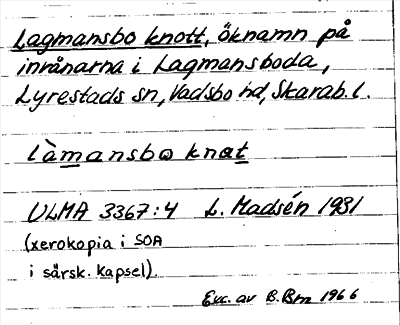 Lagmansbo knott, öknamn på
invånarna i Lagmansboda,
Lyrestads sn, Vadsbo hd, Skarab. l.
làmansbo knɷt
ULMA 3367:4 L. Madsén 1931
(xerokopia i SOA
i särsk. kapsel).
Exc. av B. Brn 1966